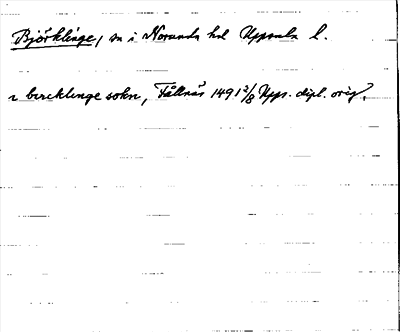 Björklinge, sn i Norunda hd Uppsala l.
i berklinge sokn, Fållnäs 1491 2/8 Upps. dipl. orig.